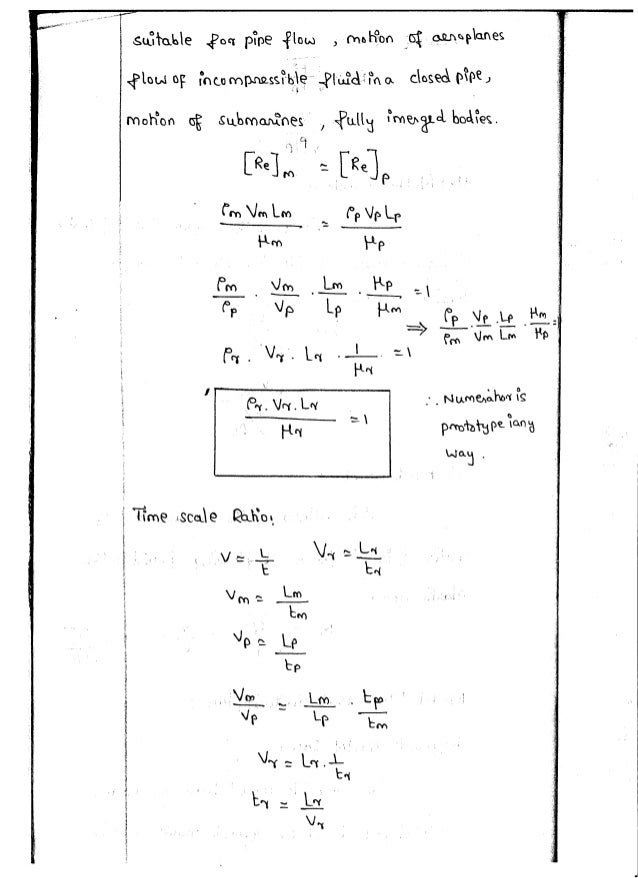 suitable for pipe flow , motion of aeroplanes
flow of incompressible fluid in a closed pipe,
motion of submarines , fully imerged bodies.
[Re]m = [Re]p
ρm Vm Lm / μm = ρp Vp Lp / μp
ρm/ρp . Vm/Vp . Lm/Lp . μp/μm = 1
⇒ ρp/ρm . Vp/Vm . Lp/Lm . μm/μp =
ρr . Vr . Lr . 1/μr = 1
ρr. Vr. Lr / μr = 1
∴ Numerator is
prototype iany
way .
Time scale Ratio:
V = L/t Vr = Lr/tr
Vm = Lm/tm
Vp = Lp/tp
Vm/Vp = Lm/Lp . tp/tm
Vr = Lr . 1/tr
tr = Lr/Vr